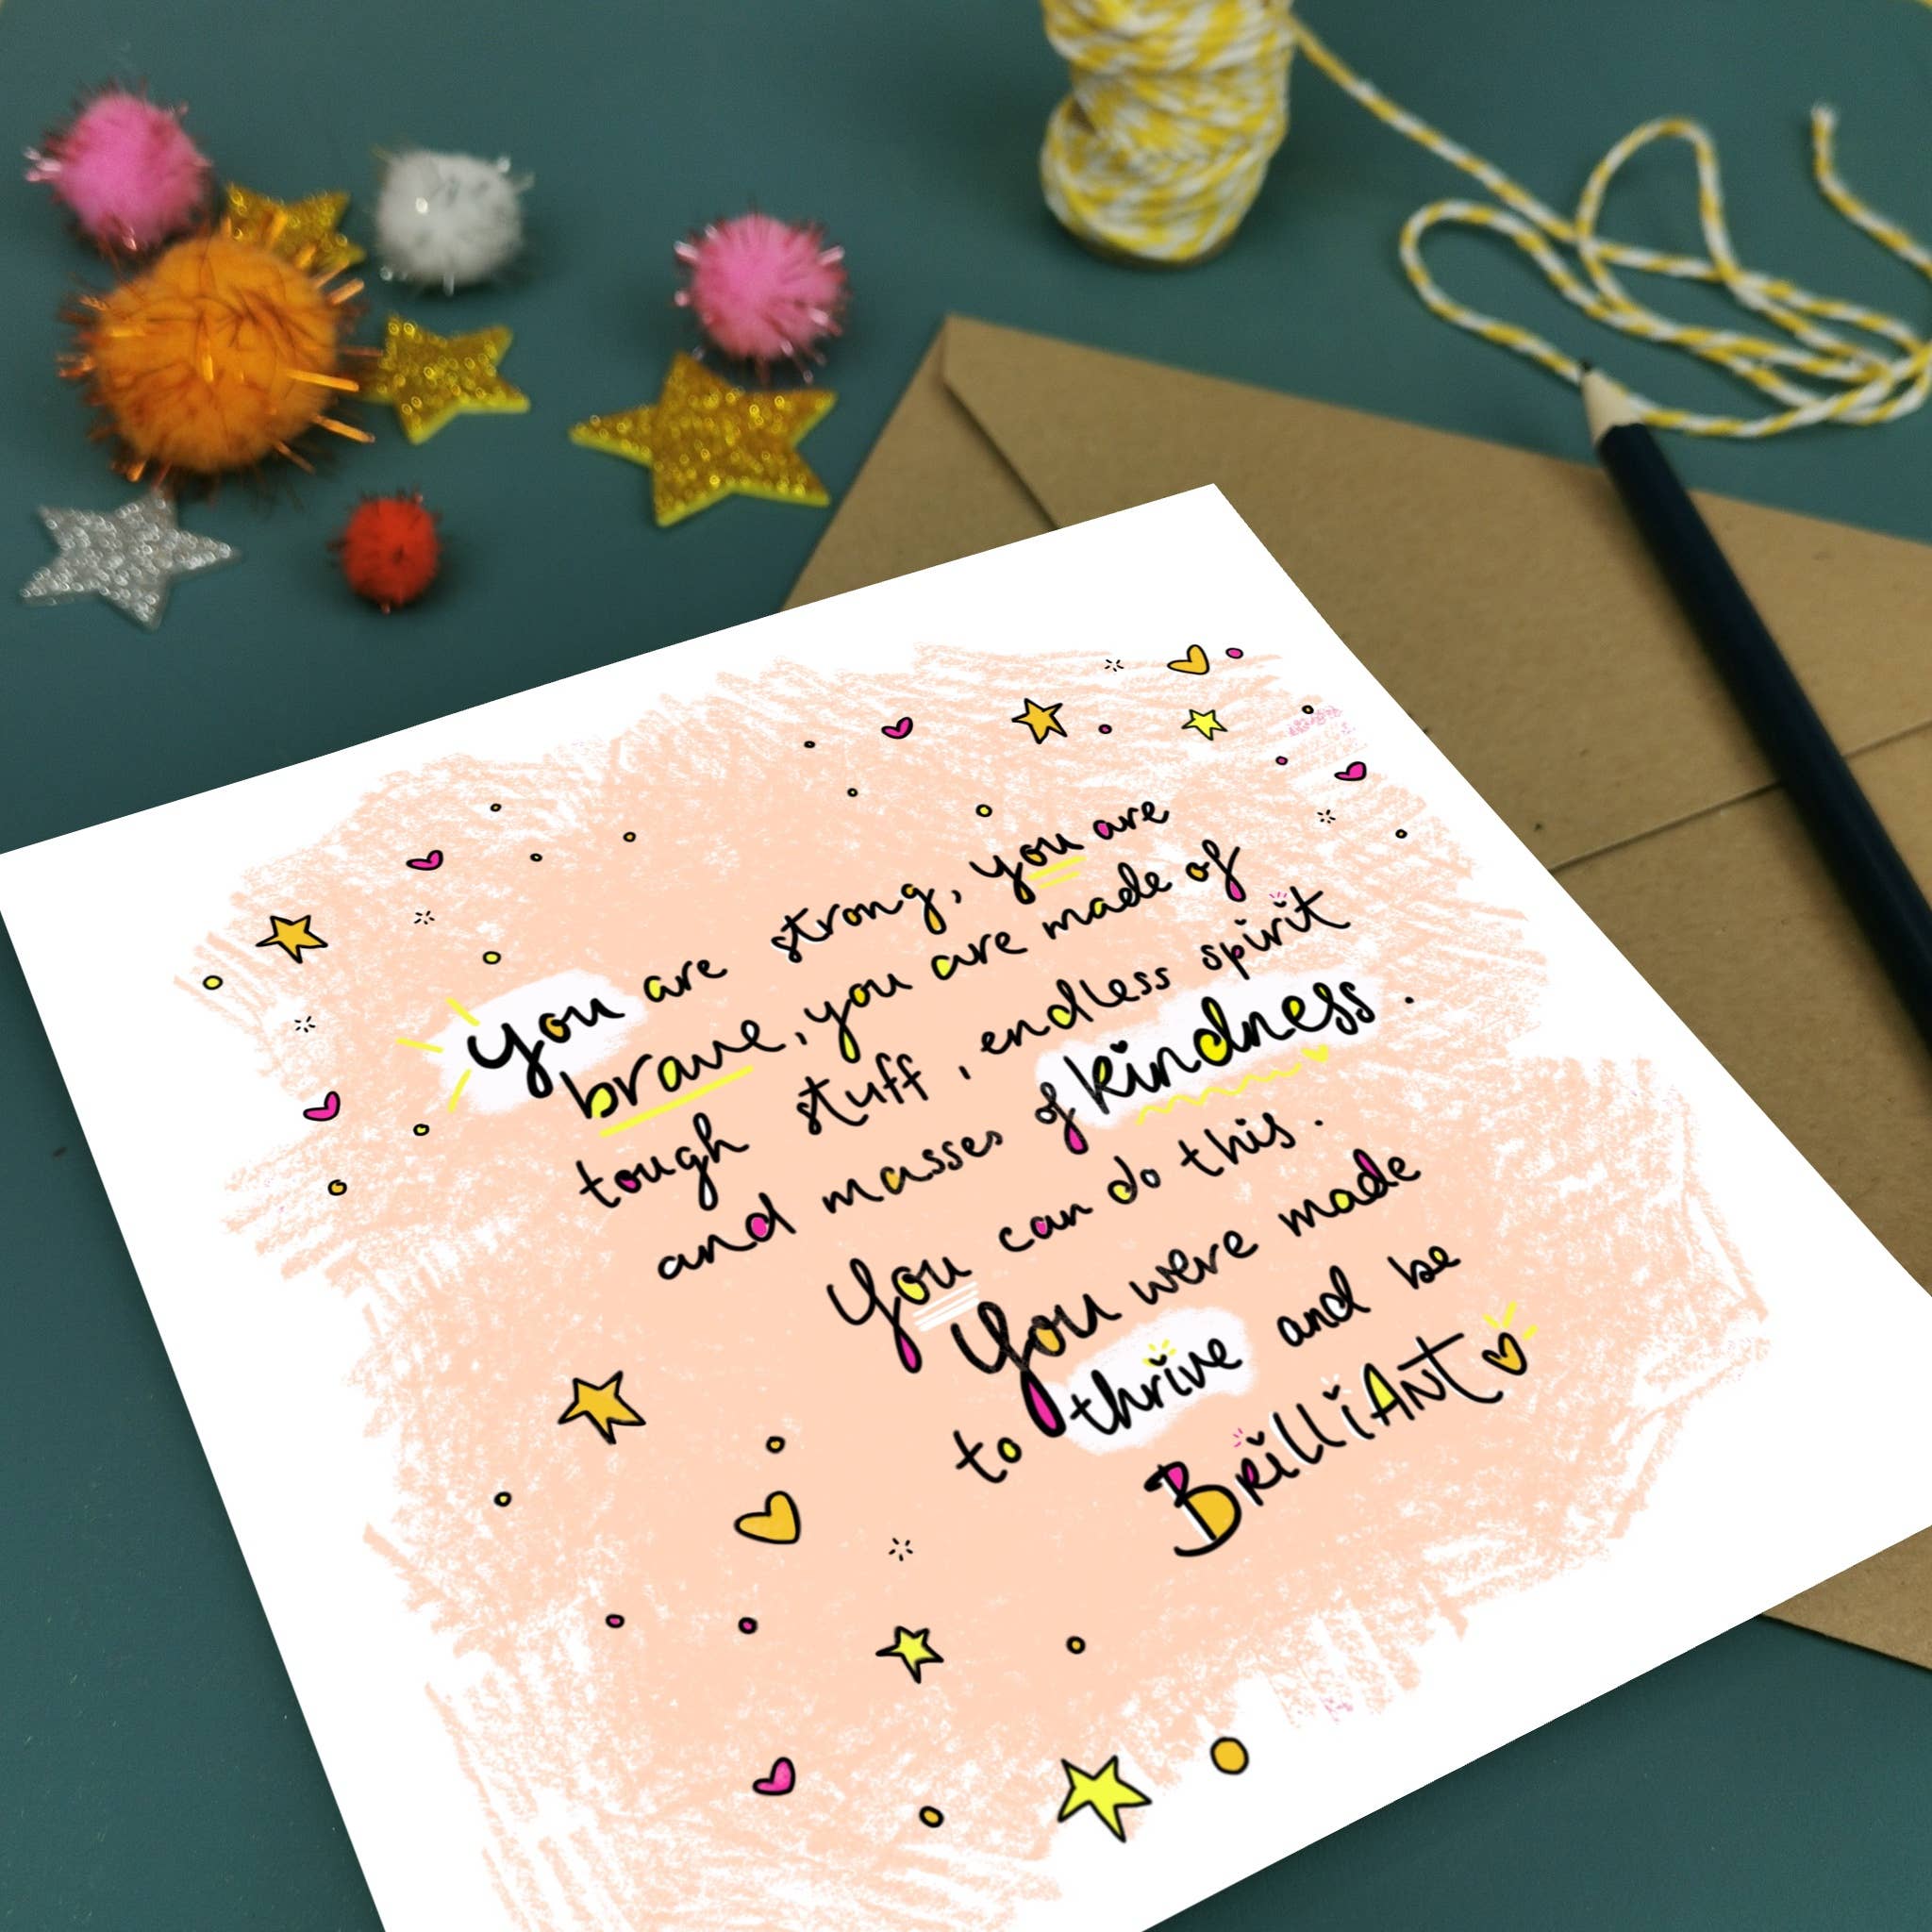 you are strong, you are
brave, you are made of
tough stuff, endless spirit
and masses of kindness.
You can do this.
You were made
to thrive and be
BrilliANT